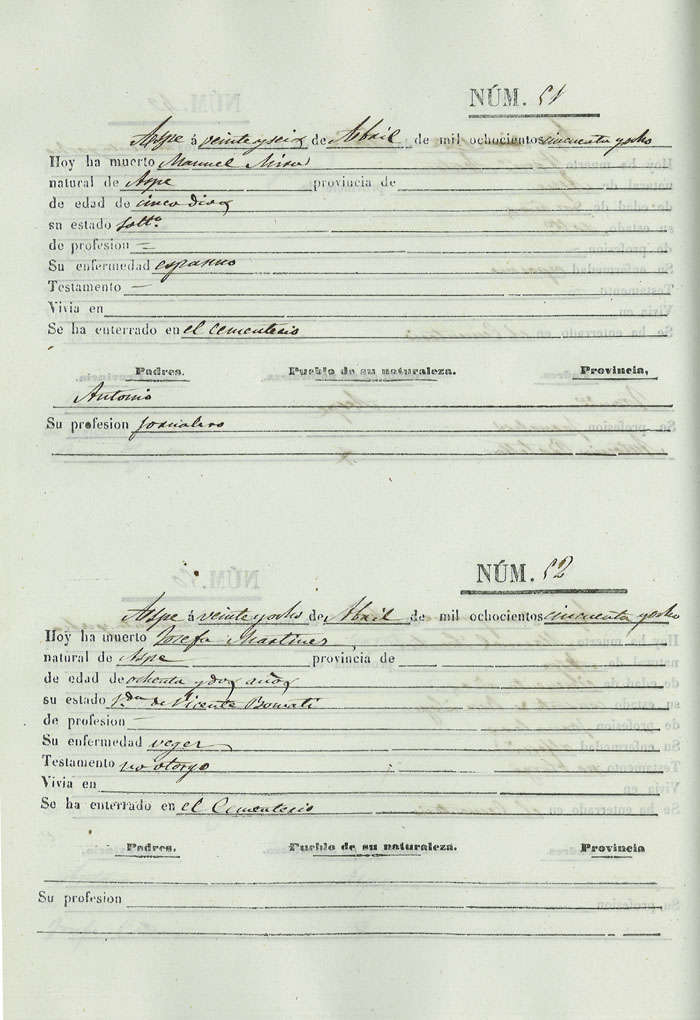 NÚM. 51
Aspe á veinte y seis de Abril de mil ochocientos cincuenta y ocho
Hoy ha muerto Manuel Mira
natural de Aspe provincia de
de edad de cinco dias
sn estado Soltº
de profesion =
Su enfermedad espasmo
Testamento —
Vivia en
Se ha enterrado en el Cementerio
Padres. Pueblo de su naturaleza. Provincia,
Antonio
Su profesion Jornalero
NÚM. 52
Aspe á veinte y ocho de Abril de mil ochocientos cincuenta y ocho
Hoy ha muerto Josefa Martines
natural de Aspe provincia de
de edad de ochenta y dos años
su estado Vda de Vicente Bonmati
de profesion —
Su enfermedad veger
Testamento no otorgo
Vivia en
Se ha enterrado en el Cementerio
Padres. Pueblo de su naturaleza. Provincia
Su profesion